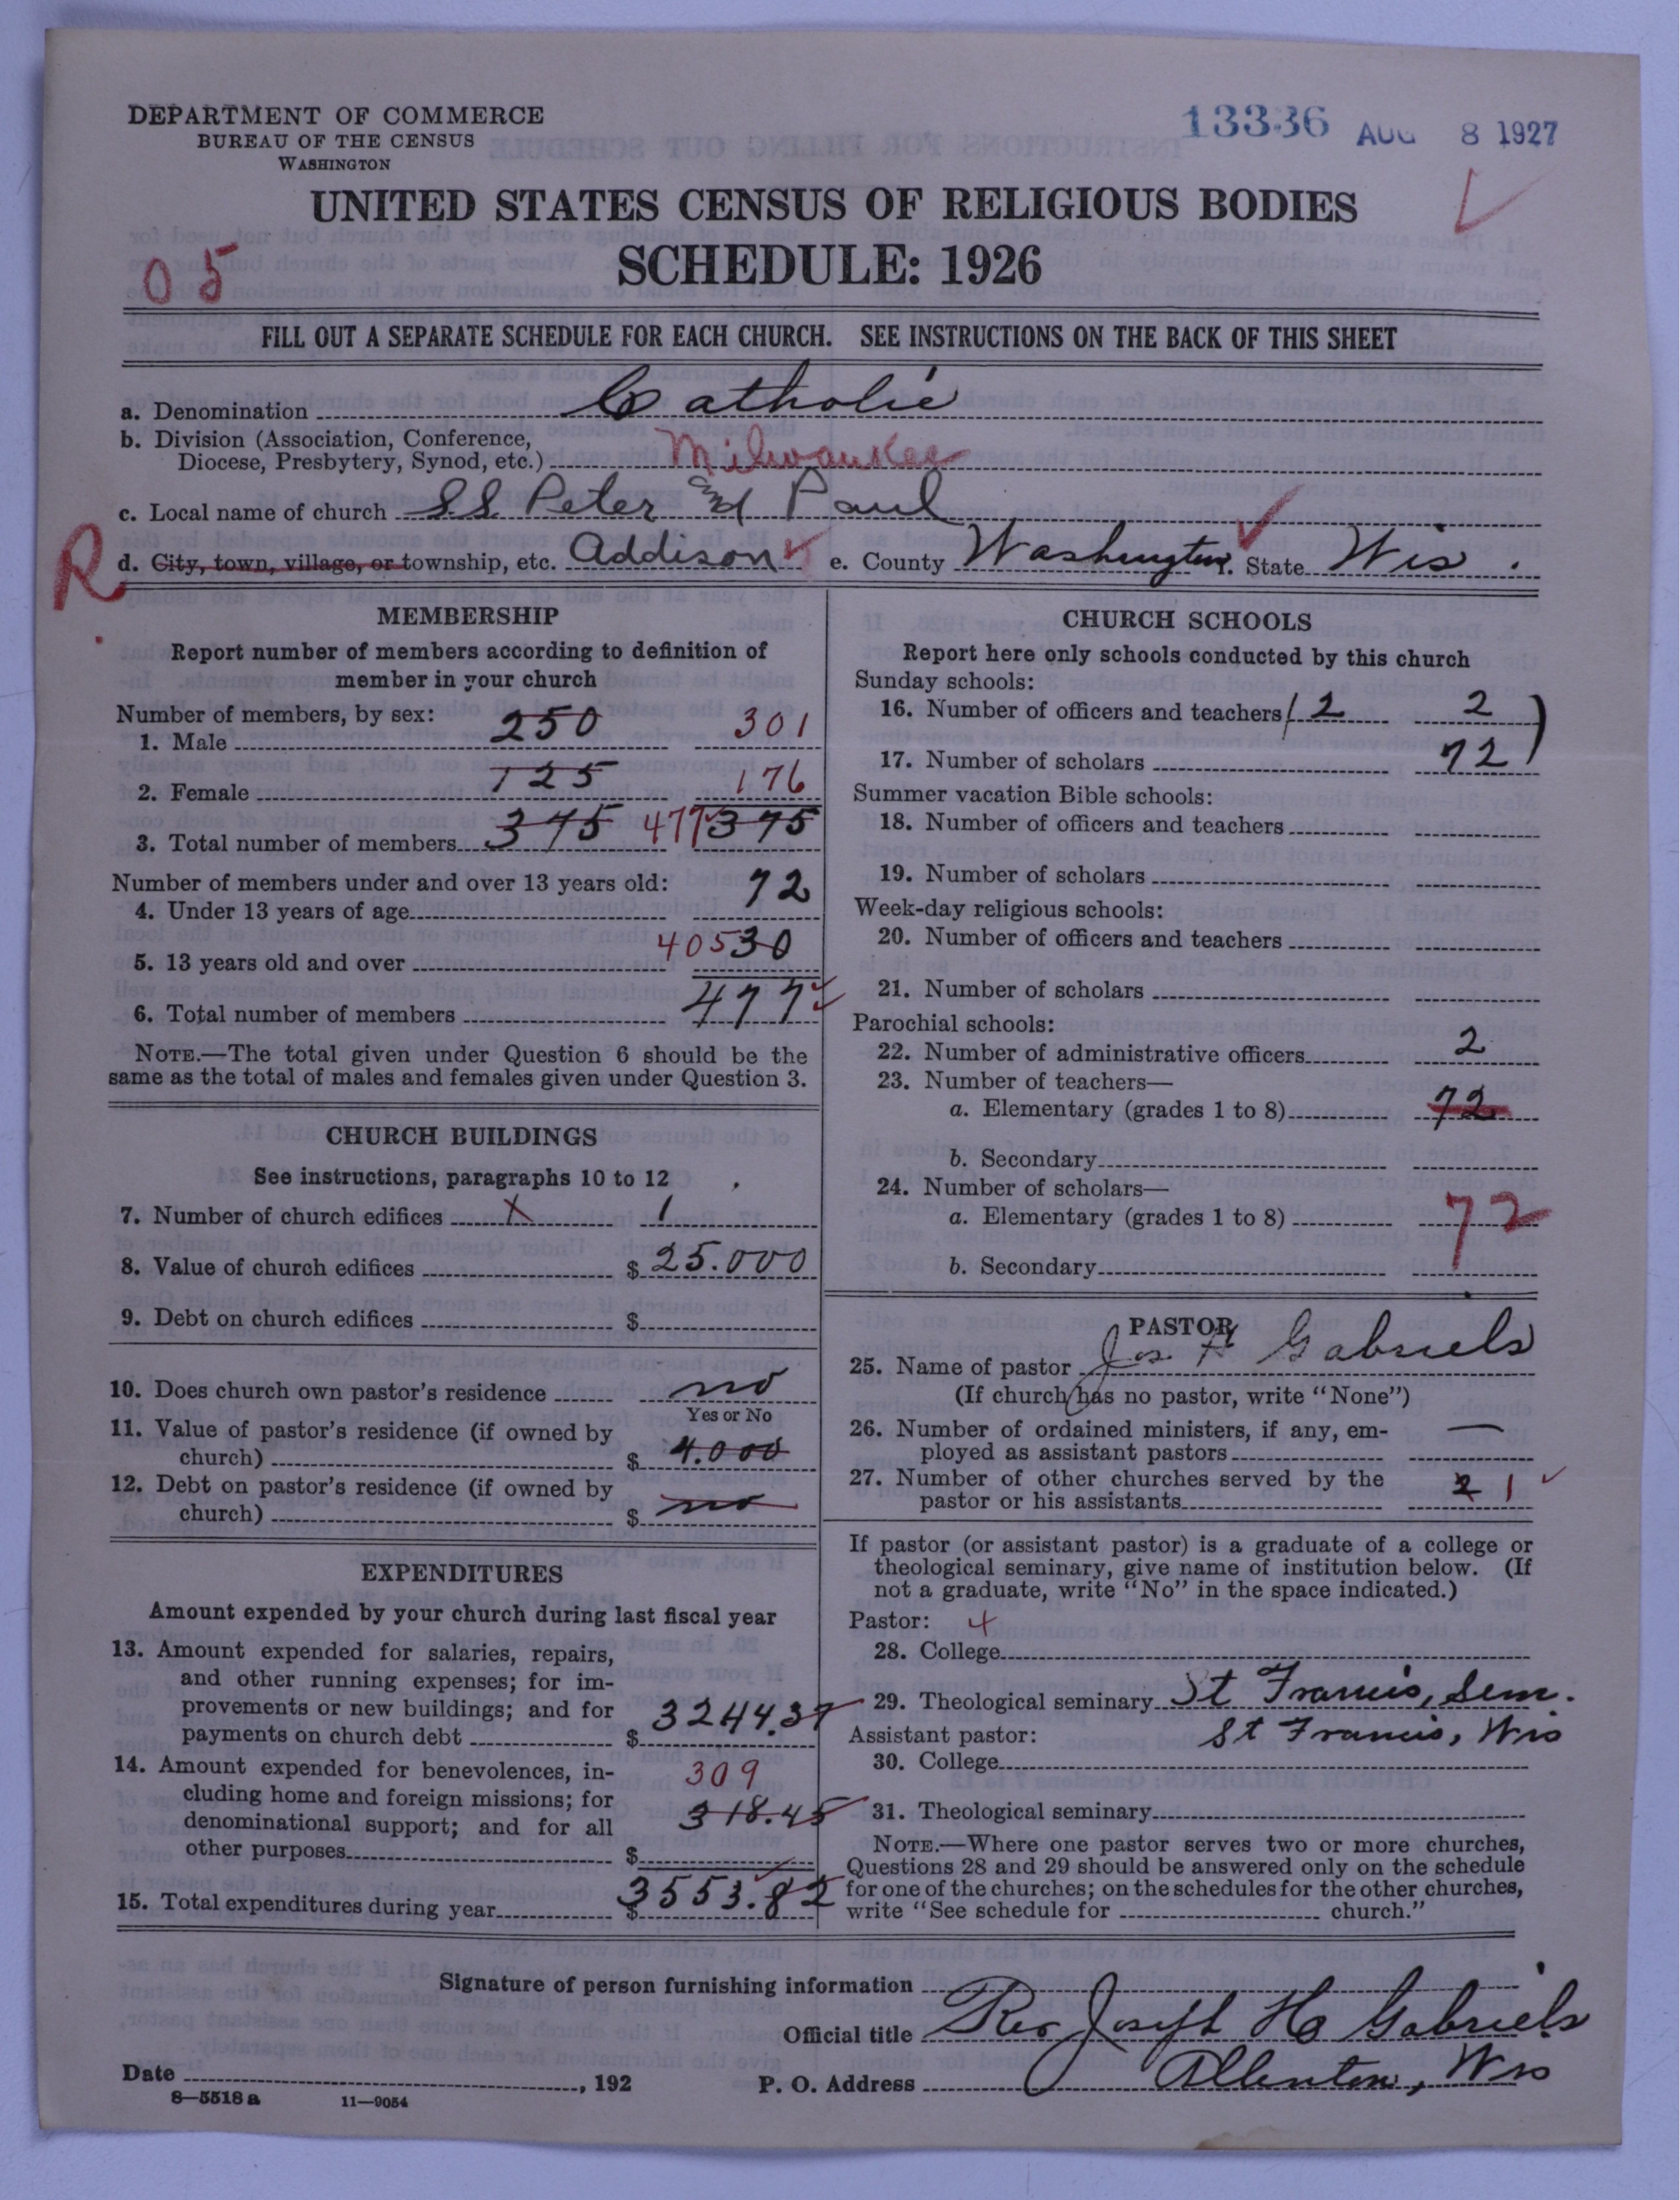 DEPARTMENT OF COMMERCE
BUREAU OF THE CENSUS
WASHINGTON
13336 AUG 8 1927
UNITED STATES CENSUS OF RELIGIOUS BODIES
SCHEDULE: 1926
05
FILL OUT A SEPARATE SCHEDULE FOR EACH CHURCH. SEE INSTRUCTIONS ON THE BACK OF THIS SHEET
a. Denomination Catholic
b. Division (Association, Conference,
Diocese, Presbytery, Synod, etc.) Milwaukee
c. Local name of church SS Peter and Paul
R d. City, town, village, or township, etc. Addison e. County Washington f. State Wis.
MEMBERSHIP
Report number of members according to definition of
member in your church
Number of members, by sex:
1. Male 250 301
2. Female 125 176
3. Total number of members 375 477 375
Number of members under and over 13 years old:
4. Under 13 years of age 72
5. 13 years old and over 405 30
6. Total number of members 477
NOTE.—The total given under Question 6 should be the
same as the total of males and females given under Question 3.
CHURCH BUILDINGS
See instructions, paragraphs 10 to 12
7. Number of church edifices 1 1
8. Value of church edifices $ 25.000
9. Debt on church edifices $
10. Does church own pastor's residence no
Yes or No
11. Value of pastor's residence (if owned by
church) $ 4.000
12. Debt on pastor's residence (if owned by
church) $ no
EXPENDITURES
Amount expended by your church during last fiscal year
13. Amount expended for salaries, repairs,
and other running expenses; for im-
provements or new buildings; and for
payments on church debt $ 3244.37
14. Amount expended for benevolences, in- 309
cluding home and foreign missions; for
denominational support; and for all 318.45
other purposes $
15. Total expenditures during year $ 3553.82
CHURCH SCHOOLS
Report here only schools conducted by this church
Sunday schools:
16. Number of officers and teachers 2 2
17. Number of scholars 72
Summer vacation Bible schools:
18. Number of officers and teachers
19. Number of scholars
Week-day religious schools:
20. Number of officers and teachers
21. Number of scholars
Parochial schools:
22. Number of administrative officers 2
23. Number of teachers—
a. Elementary (grades 1 to 8) 72
b. Secondary
24. Number of scholars—
a. Elementary (grades 1 to 8) 72
b. Secondary
PASTOR
25. Name of pastor Jos H Gabriels
(If church has no pastor, write "None")
26. Number of ordained ministers, if any, em- —
ployed as assistant pastors
27. Number of other churches served by the
pastor or his assistants 2 1
If pastor (or assistant pastor) is a graduate of a college or
theological seminary, give name of institution below. (If
not a graduate, write "No" in the space indicated.)
Pastor: 4
28. College
29. Theological seminary St Francis, Sem.
Assistant pastor: St Francis, Wis
30. College
31. Theological seminary
NOTE.—Where one pastor serves two or more churches,
Questions 28 and 29 should be answered only on the schedule
for one of the churches; on the schedules for the other churches,
write "See schedule for church."
Signature of person furnishing information
Official title Rev Joseph H Gabriels
Date , 192 P. O. Address Allenton, Wis
8—5518 a 11—9054